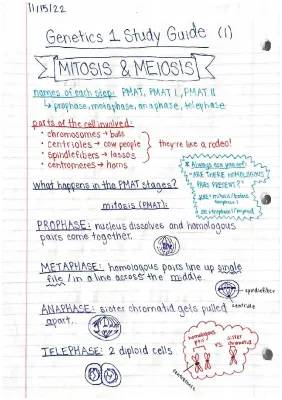 11/15/22
Genetics 1 Study Guide (1)
MITOSIS & MEIOSIS
names of each step: PMAT, PMAT I, PMAT II
↳ prophase, metaphase, anaphase, telephase
parts of the cell involved:
• chromosomes → bulls
• centrioles → cow people
• spindle fibers → lassos
• centromeres → horns
they're like a rodeo!
* Always ask yourself:
- ARE THERE HOMOLOGOUS
PAIRS PRESENT?
what happens in the PMAT stages?
mitosis (PMAT):
PROPHASE: nucleus dissolves and homologous
pairs come together.
METAPHASE: homologous pairs line up single
file / in a line across the middle.
spindle fiber
ANAPHASE: sister chromatid gets pulled
apart.
centriole
TELEPHASE: 2 diploid cells
homologous
pair
VS
sister
chromatid
centromere